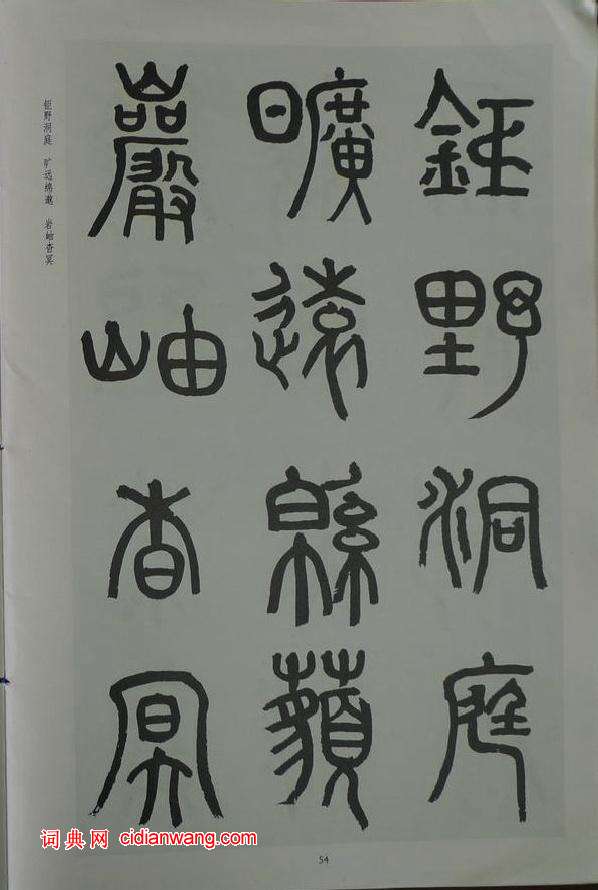 鉅野洞庭
曠遠緜藐
巖岫杳冥
钜野洞庭 旷远绵邈 岩岫杳冥
54
词典网 cidianwang.com